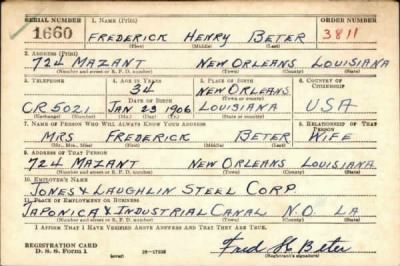 SERIAL NUMBER 1. NAME (Print) ORDER NUMBER
1660 FREDERICK HENRY BETER 3811
(First) (Middle) (Last)
2. ADDRESS (Print)
724 MAZANT NEW ORLEANS LOUISIANA
(Number and street or R. F. D. number) (Town) (County) (State)
3. TELEPHONE 4. AGE IN YEARS 5. PLACE OF BIRTH 6. COUNTRY OF CITIZENSHIP
34 NEW ORLEANS
DATE OF BIRTH (Town or county)
CR 5021 JAN 23 1906 LOUISIANA USA
(Exchange) (Number) (Mo.) (Day) (Yr.) (State or country)
7. NAME OF PERSON WHO WILL ALWAYS KNOW YOUR ADDRESS 8. RELATIONSHIP OF THAT PERSON
MRS FREDERICK BETER WIFE
(Mr., Mrs., Miss) (First) (Middle) (Last)
9. ADDRESS OF THAT PERSON
724 MAZANT NEW ORLEANS LOUISIANA
(Number and street or R. F. D. number) (Town) (County) (State)
10. EMPLOYER'S NAME
JONES & LAUGHLIN STEEL CORP
11. PLACE OF EMPLOYMENT OR BUSINESS
JAPONICA & INDUSTRIAL CANAL N.O. LA
(Number and street or R. F. D. number) (Town) (County) (State)
I AFFIRM THAT I HAVE VERIFIED ABOVE ANSWERS AND THAT THEY ARE TRUE.
REGISTRATION CARD
D. S. S. Form 1 (over) 16—17105 Fred H. Beter
(Registrant's signature)